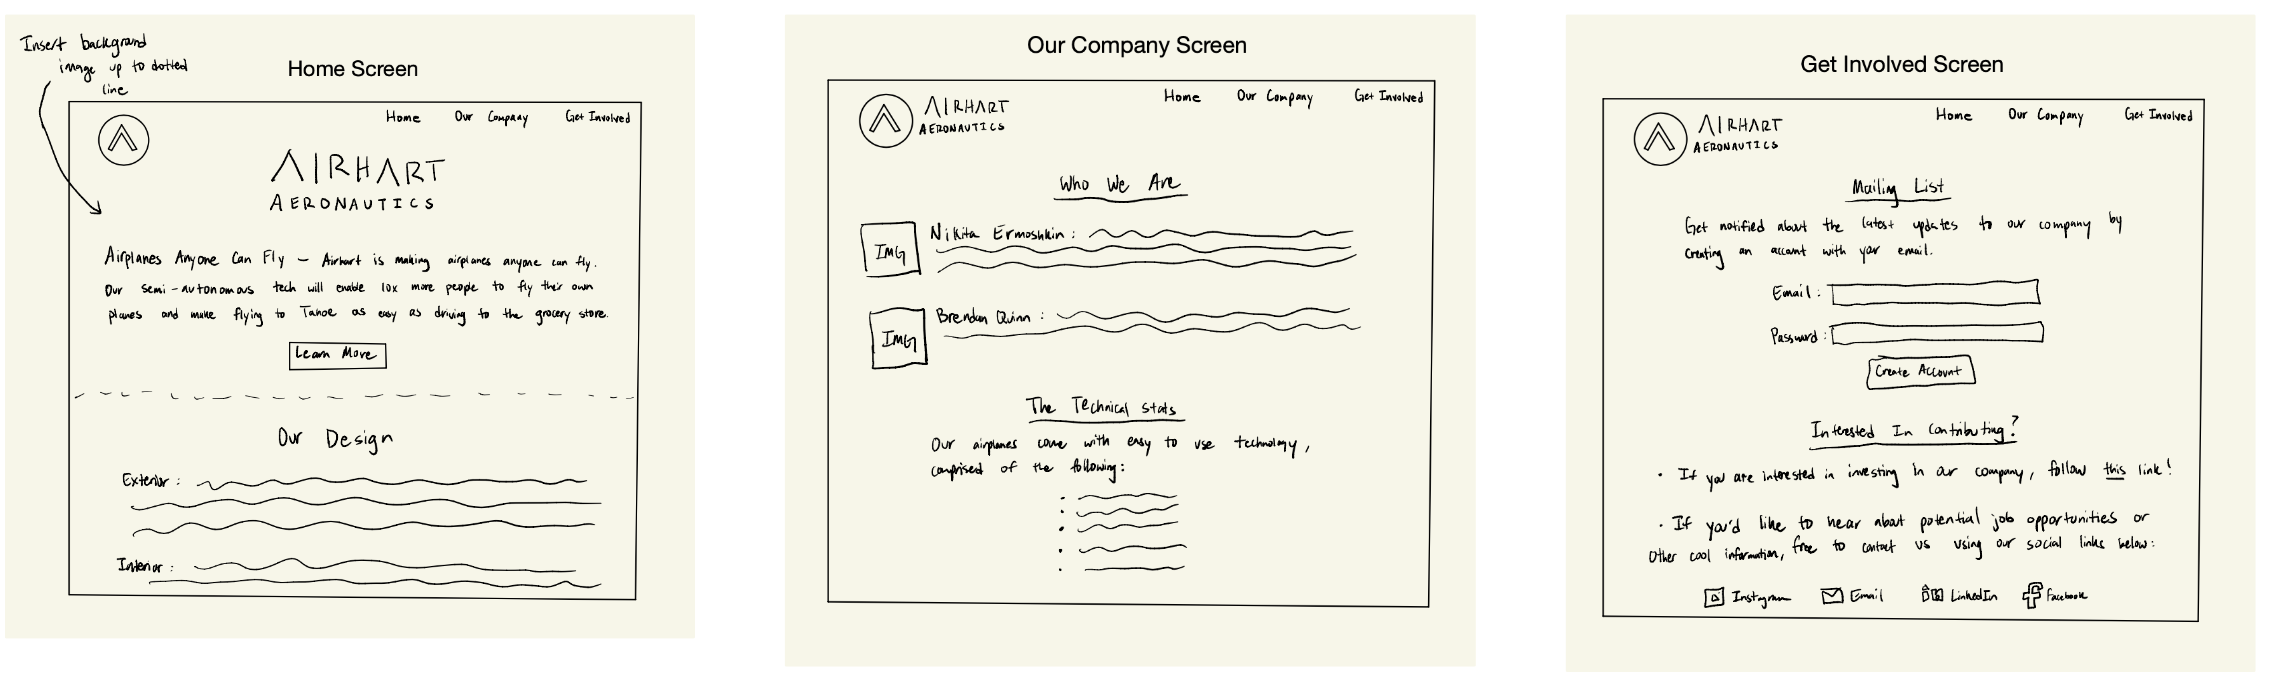 Insert background
image up to dotted
line
Home Screen
Home Our Company Get Involved
AIRHART
AERONAUTICS
Airplanes Anyone Can Fly – Airhart is making airplanes anyone can fly.
Our semi-autonomous tech will enable 10x more people to fly their own
planes and make flying to Tahoe as easy as driving to the grocery store.
Learn More
Our Design
Exterior :
Interior :
Our Company Screen
AIRHART
AERONAUTICS
Home Our Company Get Involved
Who We Are
IMG
Nikita Ermoshkin :
IMG
Brendan Quinn :
The Technical Stats
Our airplanes come with easy to use technology,
comprised of the following:
Get Involved Screen
AIRHART
AERONAUTICS
Home Our Company Get Involved
Mailing List
Get notified about the latest updates to our company by
creating an account with your email.
Email :
Password :
Create Account
Interested In Contributing?
• If you are interested in investing in our company, follow this link!
• If you'd like to hear about potential job opportunities or
Other cool information, free to contact us using our social links below:
Instagram Email LinkedIn Facebook